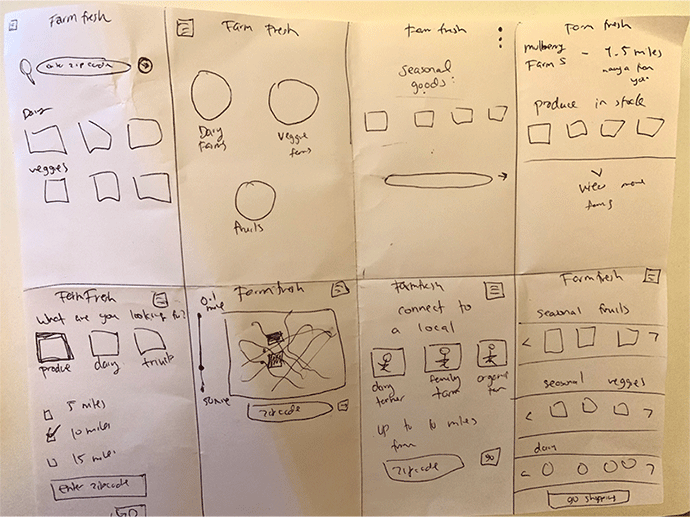 Farm fresh
enter zip code
Dairy
veggies
Farm Fresh
Dairy
Farms
Veggie
farms
fruits
Farm fresh
Seasonal
goods:
Farm fresh
mulberry
Farms
- 7.5 miles
away from
you
produce in stock
view more
farms
Farm Fresh
What are you looking for?
produce
dairy
fruits
5 miles
10 miles
15 miles
Enter zipcode
GO
Farmfresh
0.1
mile
50 mile
zipcode
Farmfresh
connect to
a local
dairy
farmer
family
farm
organic
farm
up to 10 miles
from
zipcode
go
Farmfresh
seasonal fruits
seasonal veggies
dairy
go shopping